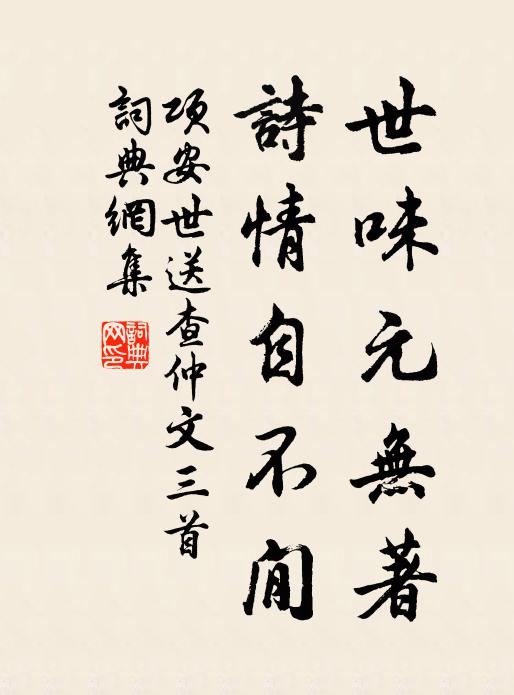 世味元無著
詩情自不閒
項安世送查仲文三首
詞典網集
詞典网印